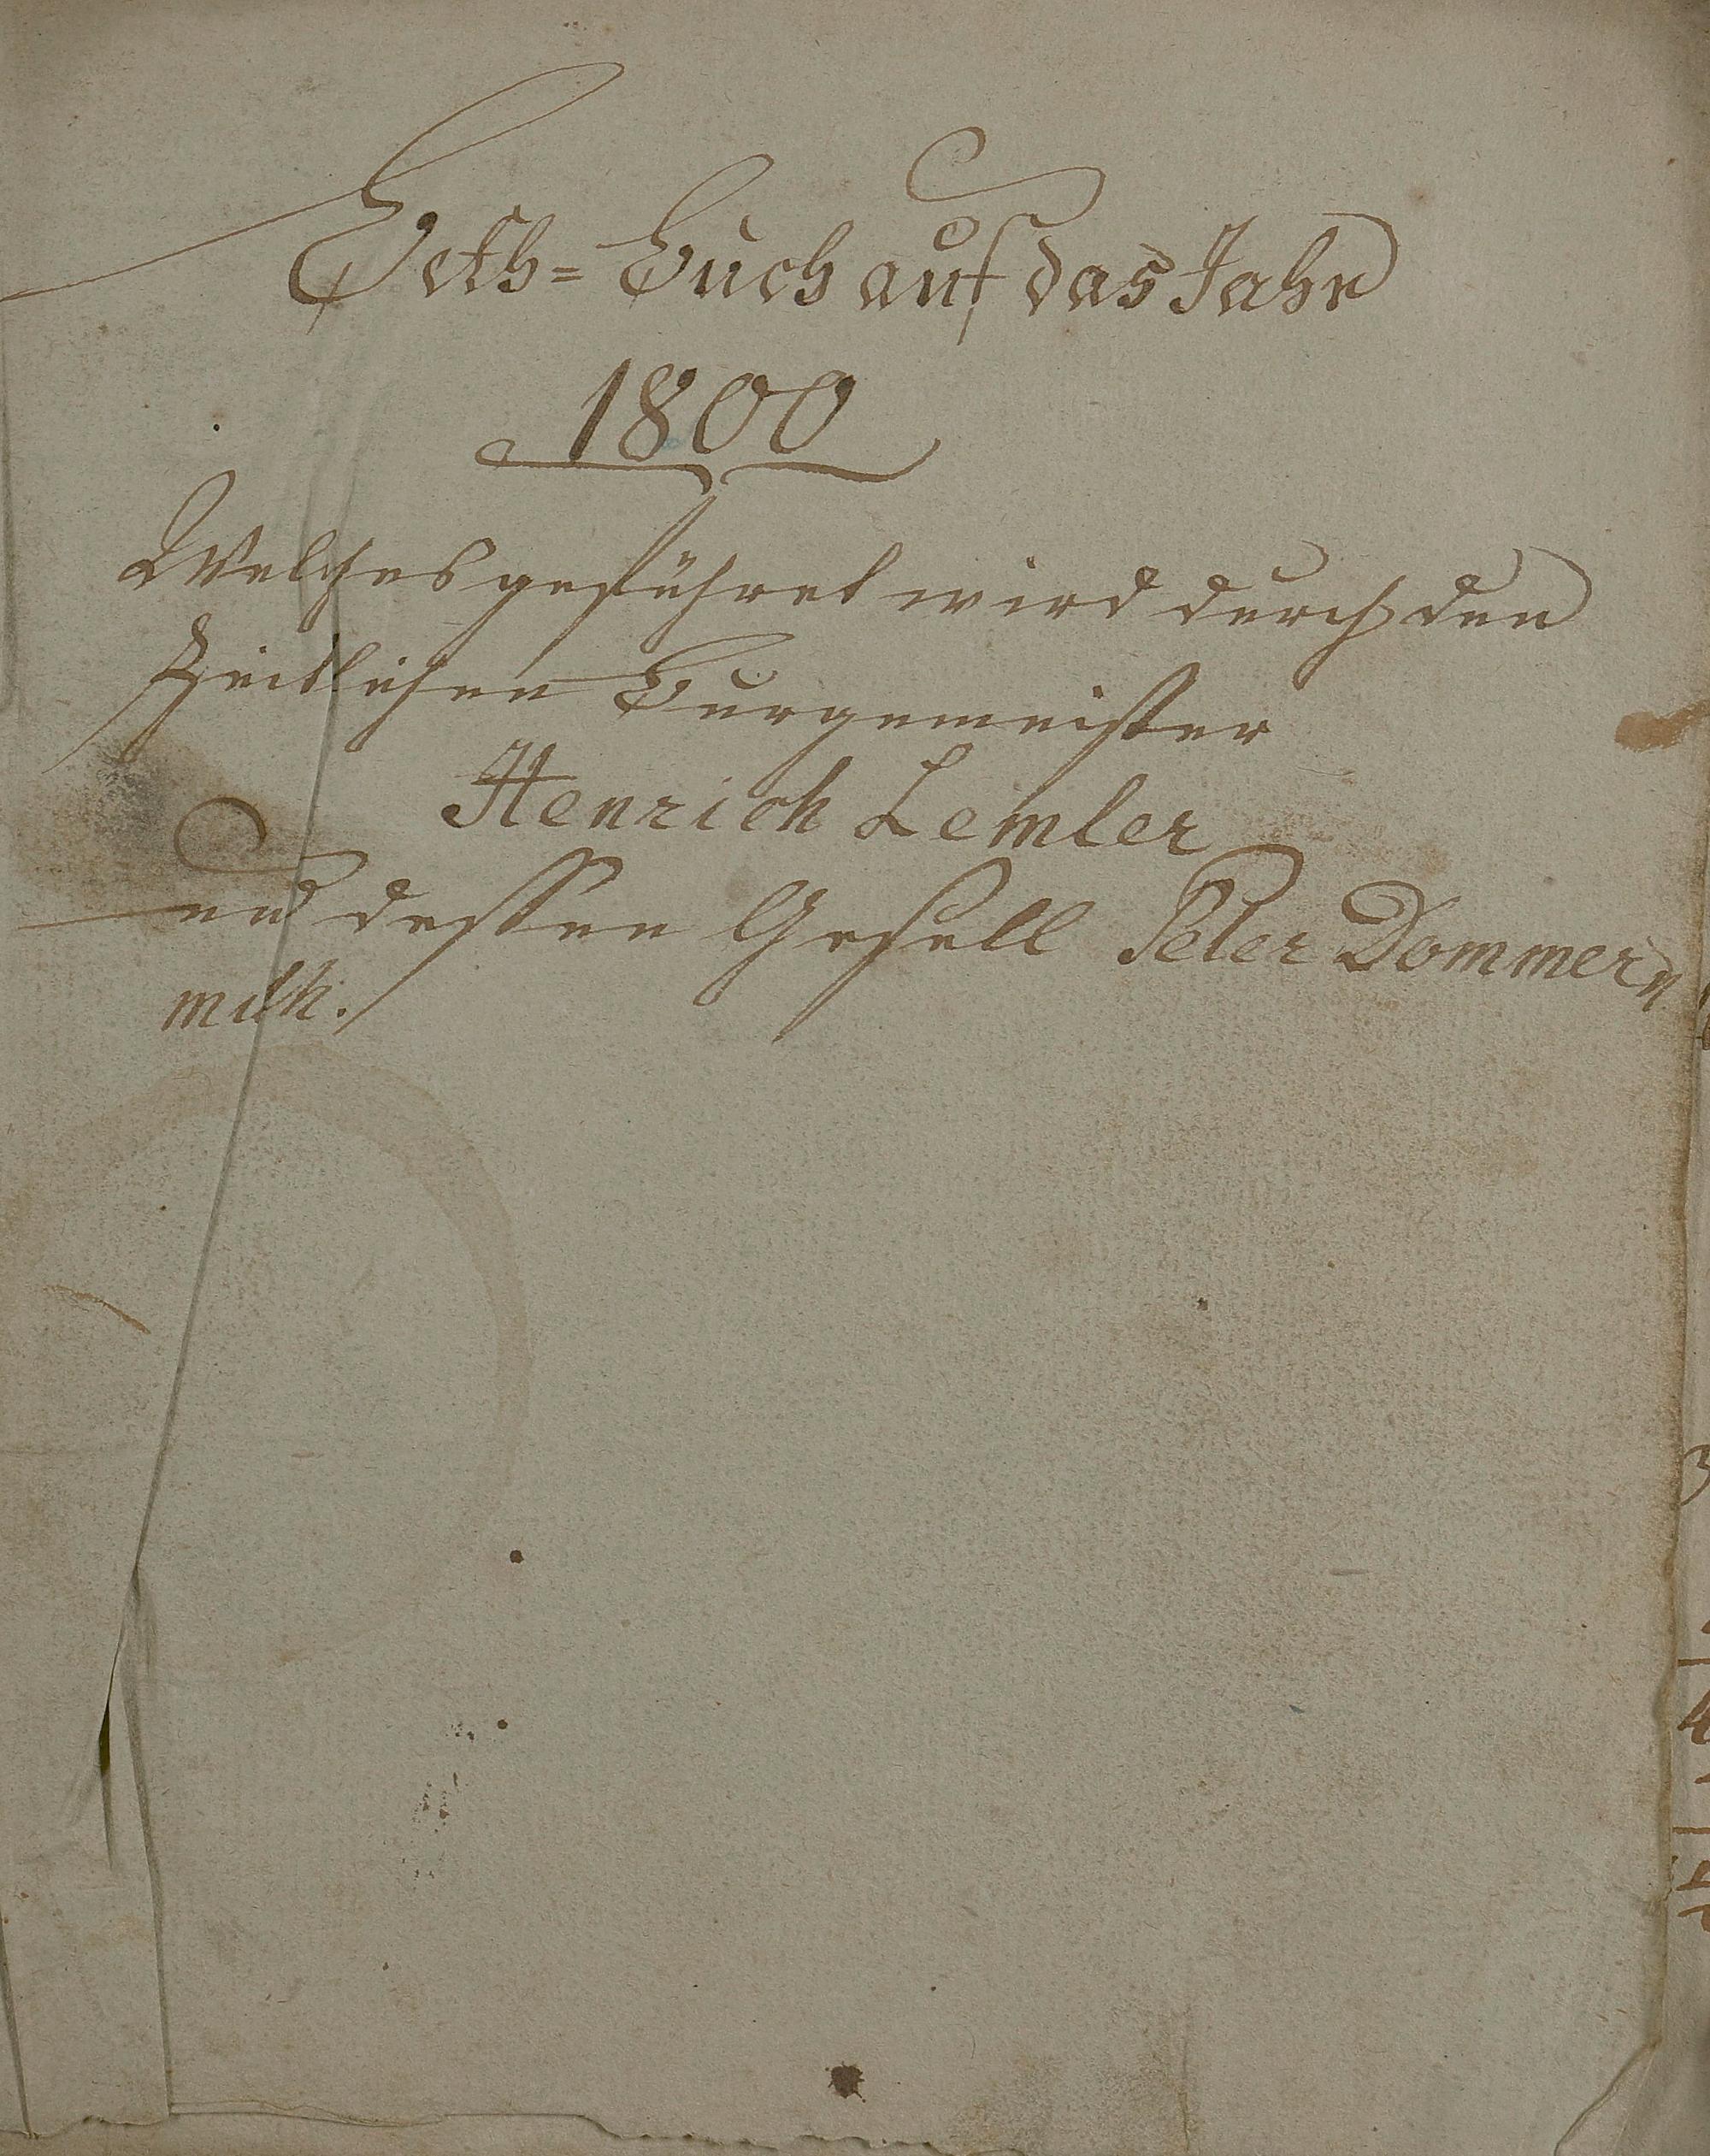 Beth = Buch auf das Jahr
1800
Welches geführet wird durch den
Zeitlichen Burgemeister
Henrich Lemler
und dessen Gesell Peter Dommern
mth.